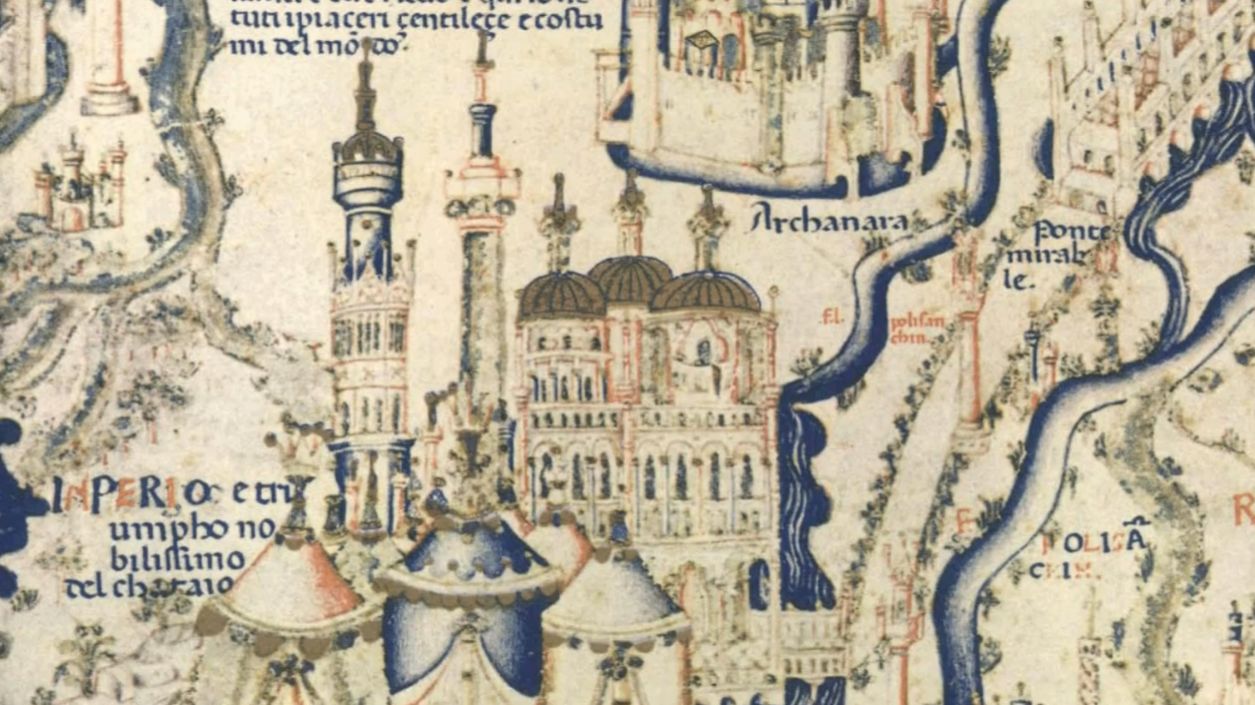 tuti i piaceri gentileçe e costu
mi del mōdo.
Archanara
Ponte
mirab
le.
F.L.
polisan
chin.
INPERIO e tri
umpho no
bilissimo
del chataio
F
POLISĀ
CIN.
R